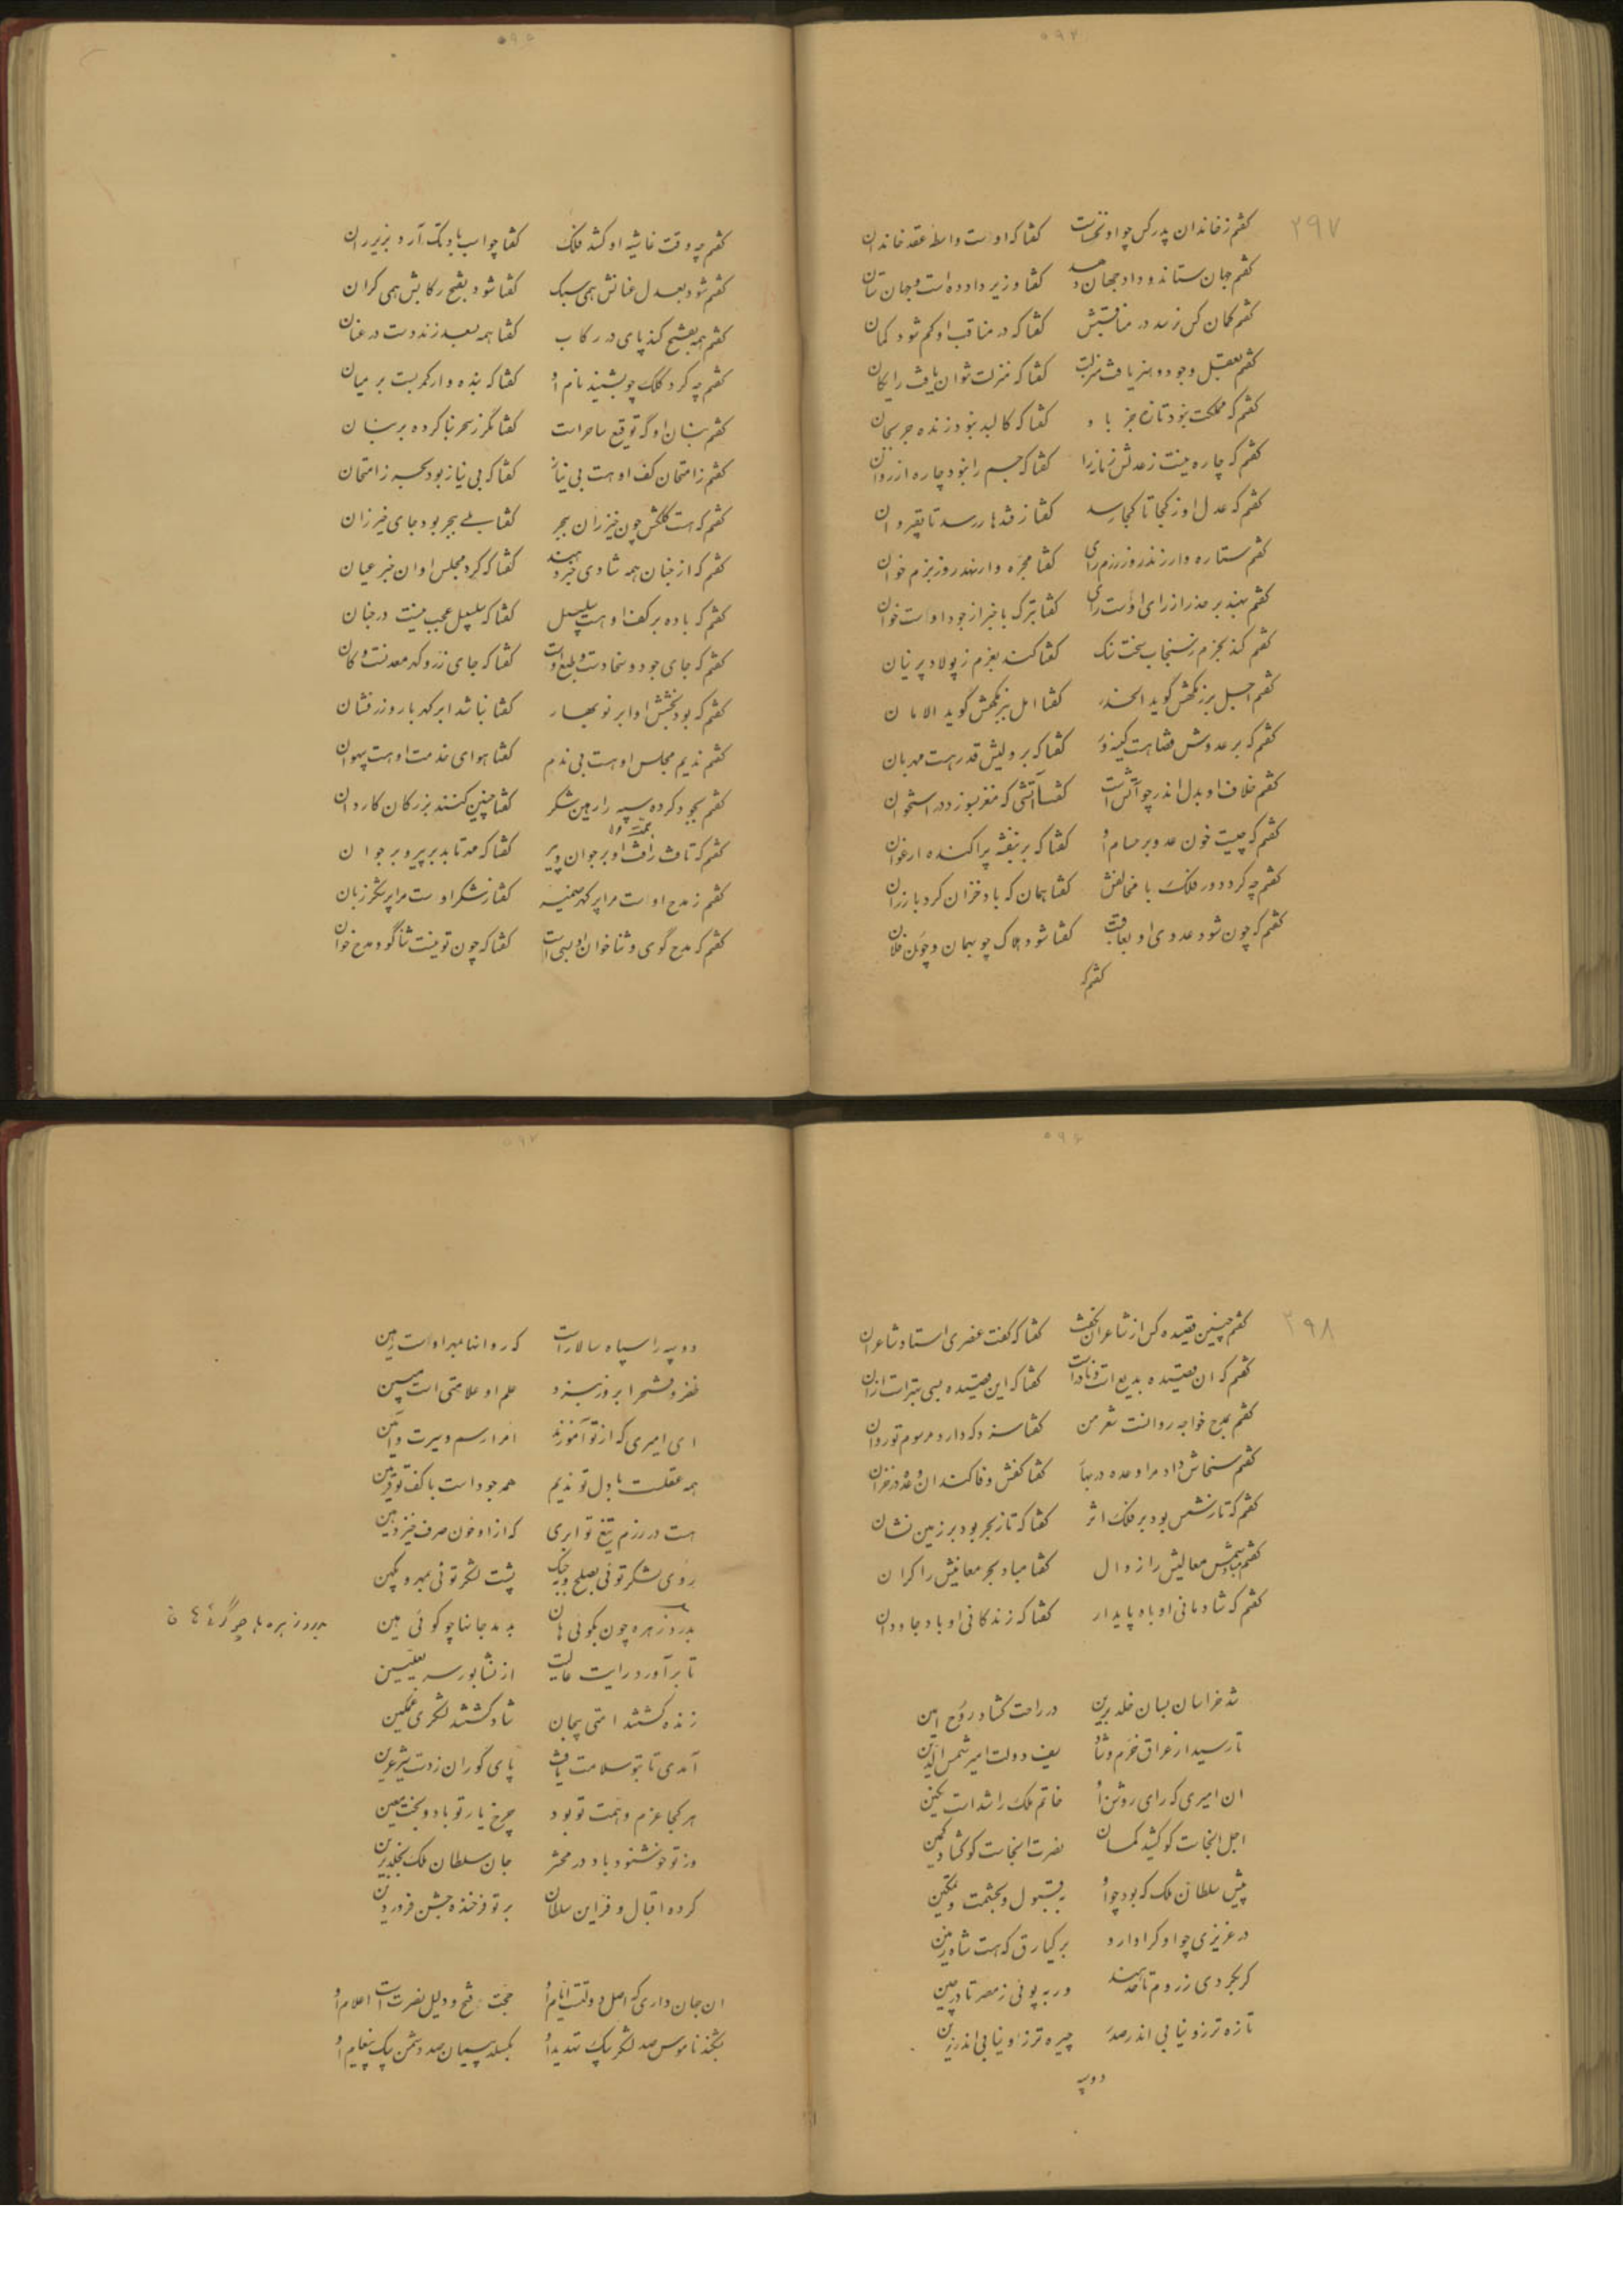 ۲۹۷
گفتم ز خاندان پدر کس چو او نخاست گفتا که او است واسطه عقد خاندان
گفتم جهان ستاند و داد جهان دهد گفتا وزیر داد ده است و جهان ستان
گفتم کمان کس نرسد در مناقبش گفتا که در مناقب او کم شود کمان
گفتم بعقل وجود و هنر یافت منزلت گفتا که منزلت نتوان یافت رایکان
گفتم که مملکت نبود تازه جز باو گفتا که کالبد نبود زنده جز بجان
گفتم که چاره نیست ز عدلش زمانه را گفتا که جسم را نبود چاره از روان
گفتم که عدل او ز کجا تا کجا رسد گفتا ز قندهار رسد تا بقیروان
گفتم ستاره وار زند روز رزم رای گفتا مجره وار نهد روز بزم خوان
گفتم بهند بر حذر از رای اوست رای گفتا بترک با خبر از جود اوست خوان
گفتم کند بحزم ز سنجاب سخت سنک گفتا کند بعزم ز پولاد پرنیان
گفتم اجل برزمگهش گوید الحذر گفتا امل ببزمگهش گوید الامان
گفتم که بر عدوش قضا هست کینه ور گفتا که بر ولیش قدر هست مهربان
گفتم خلاف او بدل اندر چو آتش است گفتا آتشی که مغز بسوزد در استخوان
گفتم که چیست خون عدو بر حسام او گفتا که بر بنفشه پراکنده ارغوان
گفتم چه کرد دور فلک با مخالفش گفتا همان که باد خزان کرد با رزان
گفتم که چون شود عدوی او بعاقبت گفتا شود هلاک چو بهمان و چون فلان
گفتم که
گفتم چه وقت غاشیه او کشد فلک گفتا چو اسب بادتک آرد بزیر ران
گفتم شود بعدل عنانش همی سبک گفتا شود بفتح رکابش همی کران
گفتم همه بفتح کند پای در رکاب گفتا همه بعدل زند دست در عنان
گفتم چه کرد کلک چو بشنید نام او گفتا که بنده وار کمر بست بر میان
گفتم بنان او گه توقیع ساحر است گفتا مگر ز سحر بنا کرده بر بنان
گفتم ز امتحان کف او هست بی نیاز گفتا که بی نیاز بود بحر ز امتحان
گفتم که هست کلکش چون خیزران ببحر گفتا بلی ببحر بود جای خیزران
گفتم که از جنان همه شادی خبر دهند گفتا که کرد مجلس او ان خبر عیان
گفتم که باده بر کف او هست سلسبیل گفتا که سلسبیل عجب نیست در جنان
گفتم که جای جود و سخا دست و طبع اوست گفتا که جای زر و گهر معدنست و کان
گفتم که بود بخشش او ابر نوبهار گفتا نباشد ابر گهربار و زرفشان
گفتم ندیم مجلس او هست بی ندم گفتا هوای خدمت او هست بی هوان
گفتم بجود کرده سپه را رهین شکر گفتا چنین کنند بزرکان کاردان
گفتم که تافت رافت او بر جوان و پیر گفتا که مه بتابد بر پیر و بر جوان
گفتم ز مدح او است مرا پر گهر سفینه گفتا ز شکر او ست مرا پر شکر زبان
گفتم که مدح گوی و ثناخوان او بسی است گفتا که چون تو نیست ثناگو و مدح خوان
۲۹۸
گفتم چنین قصیده کس از شاعران نگفت گفتا که گفت عنصری استاد شاعران
گفتم که ان قصیده بدیع است و نادر است گفتا که این قصیده بسی بهتر است از ان
گفتم بمدح خواجه روانست شعر من گفتا سزد که دارد مرسوم تو روان
گفتم سخاش داد مرا وعده در بهار گفتا کفش وفا کند ان وعده در خزان
گفتم که تا ز شمس بود بر فلک اثر گفتا که تا ز بحر بود بر زمین نشان
گفتم مباد شمس معالیش را زوال گفتا مباد بحر معانیش را کران
گفتم که شادمانی او باد پایدار گفتا که زندگانی او باد جاودان
شد خراسان بسان خلد برین در راحت کشاد روح امین
تا رسید از عراق خرم و شاد سیف دولت امیر شمس الدین
ان امیری که رای روشن او خاتم ملک را شد است نکین
اجل انجاست کو کشید کمان نصرت انجاست کو کشاد کمین
پیش سلطان ملک که بود چو او بقبول و بحشمت و تمکین
در عزیزی چو او کرا دارد برکیارق که هست شاه زمین
گر بگردی ز روم تا حد هند ور بپوئی ز مصر تا در چین
تازه تر زو نیابی اندر صدر چیره تر زو نیابی اندر زین
دو سپه
دو سپه را سپاه سالار است که روانها بمهر او است رهین
ظفر و فتح را بروز نبرد علم او علامتی است مبین
ای امیری که از تو آموزند امرا رسم و سیرت و آئین
همه عقلست با دل تو ندیم همه جود است با کف تو قرین
هست در رزم تیغ تو ابری که از او خون صرف خیزد هین
روی لشکر توئی بصلح و جنگ پشت لشکر توئی بمهر و بکین
بدرد زهره چون بگوئی هان بدمد جانها چو گوئی هین
تا برآورد رایت عالیت از نشابور سر بعلیین
زنده گشتند امتی بیجان شاد گشتند لشکری غمگین
آمدی تا بتو سلامت یافت پای گوران ز دست شیر عرین
هر کجا عزم و همت تو بود چرخ یار تو باد و بخت معین
وز تو خوشنود باد در محشر جان سلطان ملک بخلد برین
کرده اقبال و فر این سلطان بر تو فرخنده جشن فروردین
ان جهان داری که اصل دولتست ایام او حجت فتح و دلیل نصرت است اعلام او
بشکند ناموس صد لشکر بیک تهدید او بگسلد پیمان صد دشمن بیک پیغام او